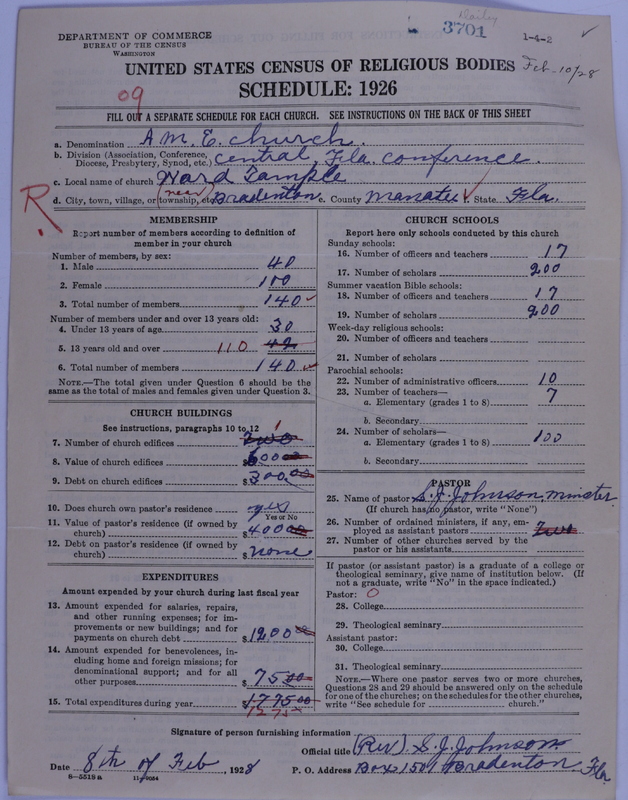 3701
1-4-2
DEPARTMENT OF COMMERCE
BUREAU OF THE CENSUS
WASHINGTON
Feb-10/28
UNITED STATES CENSUS OF RELIGIOUS BODIES
SCHEDULE: 1926
09
FILL OUT A SEPARATE SCHEDULE FOR EACH CHURCH. SEE INSTRUCTIONS ON THE BACK OF THIS SHEET
a. Denomination A.M.E. church.
b. Division (Association, Conference, Diocese, Presbytery, Synod, etc.) central, Fla. conference.
c. Local name of church Ward Temple
R. d. City, town, village, or (near) township, etc. Bradenton e. County Manatee f. State Fla.
MEMBERSHIP
Report number of members according to definition of
member in your church
Number of members, by sex:
1. Male 40
2. Female 100
3. Total number of members 140
Number of members under and over 13 years old:
4. Under 13 years of age 30
5. 13 years old and over 110
6. Total number of members 140
NOTE.—The total given under Question 6 should be the
same as the total of males and females given under Question 3.
CHURCH BUILDINGS
See instructions, paragraphs 10 to 12
7. Number of church edifices 1
8. Value of church edifices $6000
9. Debt on church edifices $300.00
10. Does church own pastor's residence yes
Yes or No
11. Value of pastor's residence (if owned by
church) $40000
12. Debt on pastor's residence (if owned by
church) $none
EXPENDITURES
Amount expended by your church during last fiscal year
13. Amount expended for salaries, repairs,
and other running expenses; for im-
provements or new buildings; and for
payments on church debt $1200 00
14. Amount expended for benevolences, in-
cluding home and foreign missions; for
denominational support; and for all
other purposes $75 00
15. Total expenditures during year $1775 00
1275
CHURCH SCHOOLS
Report here only schools conducted by this church
Sunday schools:
16. Number of officers and teachers 17
17. Number of scholars 200
Summer vacation Bible schools:
18. Number of officers and teachers 17
19. Number of scholars 200
Week-day religious schools:
20. Number of officers and teachers
21. Number of scholars
Parochial schools:
22. Number of administrative officers 10
23. Number of teachers—
a. Elementary (grades 1 to 8) 7
b. Secondary
24. Number of scholars—
a. Elementary (grades 1 to 8) 100
b. Secondary
PASTOR
25. Name of pastor S.J. Johnson, minister
(If church has no pastor, write "None")
26. Number of ordained ministers, if any, em-
ployed as assistant pastors Two
27. Number of other churches served by the
pastor or his assistants
If pastor (or assistant pastor) is a graduate of a college or
theological seminary, give name of institution below. (If
not a graduate, write "No" in the space indicated.)
Pastor: 0
28. College
29. Theological seminary
Assistant pastor:
30. College
31. Theological seminary
NOTE.—Where one pastor serves two or more churches,
Questions 28 and 29 should be answered only on the schedule
for one of the churches; on the schedules for the other churches,
write "See schedule for church."
Signature of person furnishing information
Official title (Rev) S.J. Johnson
Date 8th of Feb, 1928 P. O. Address Box 1501 Bradenton Fla
8—5519 a